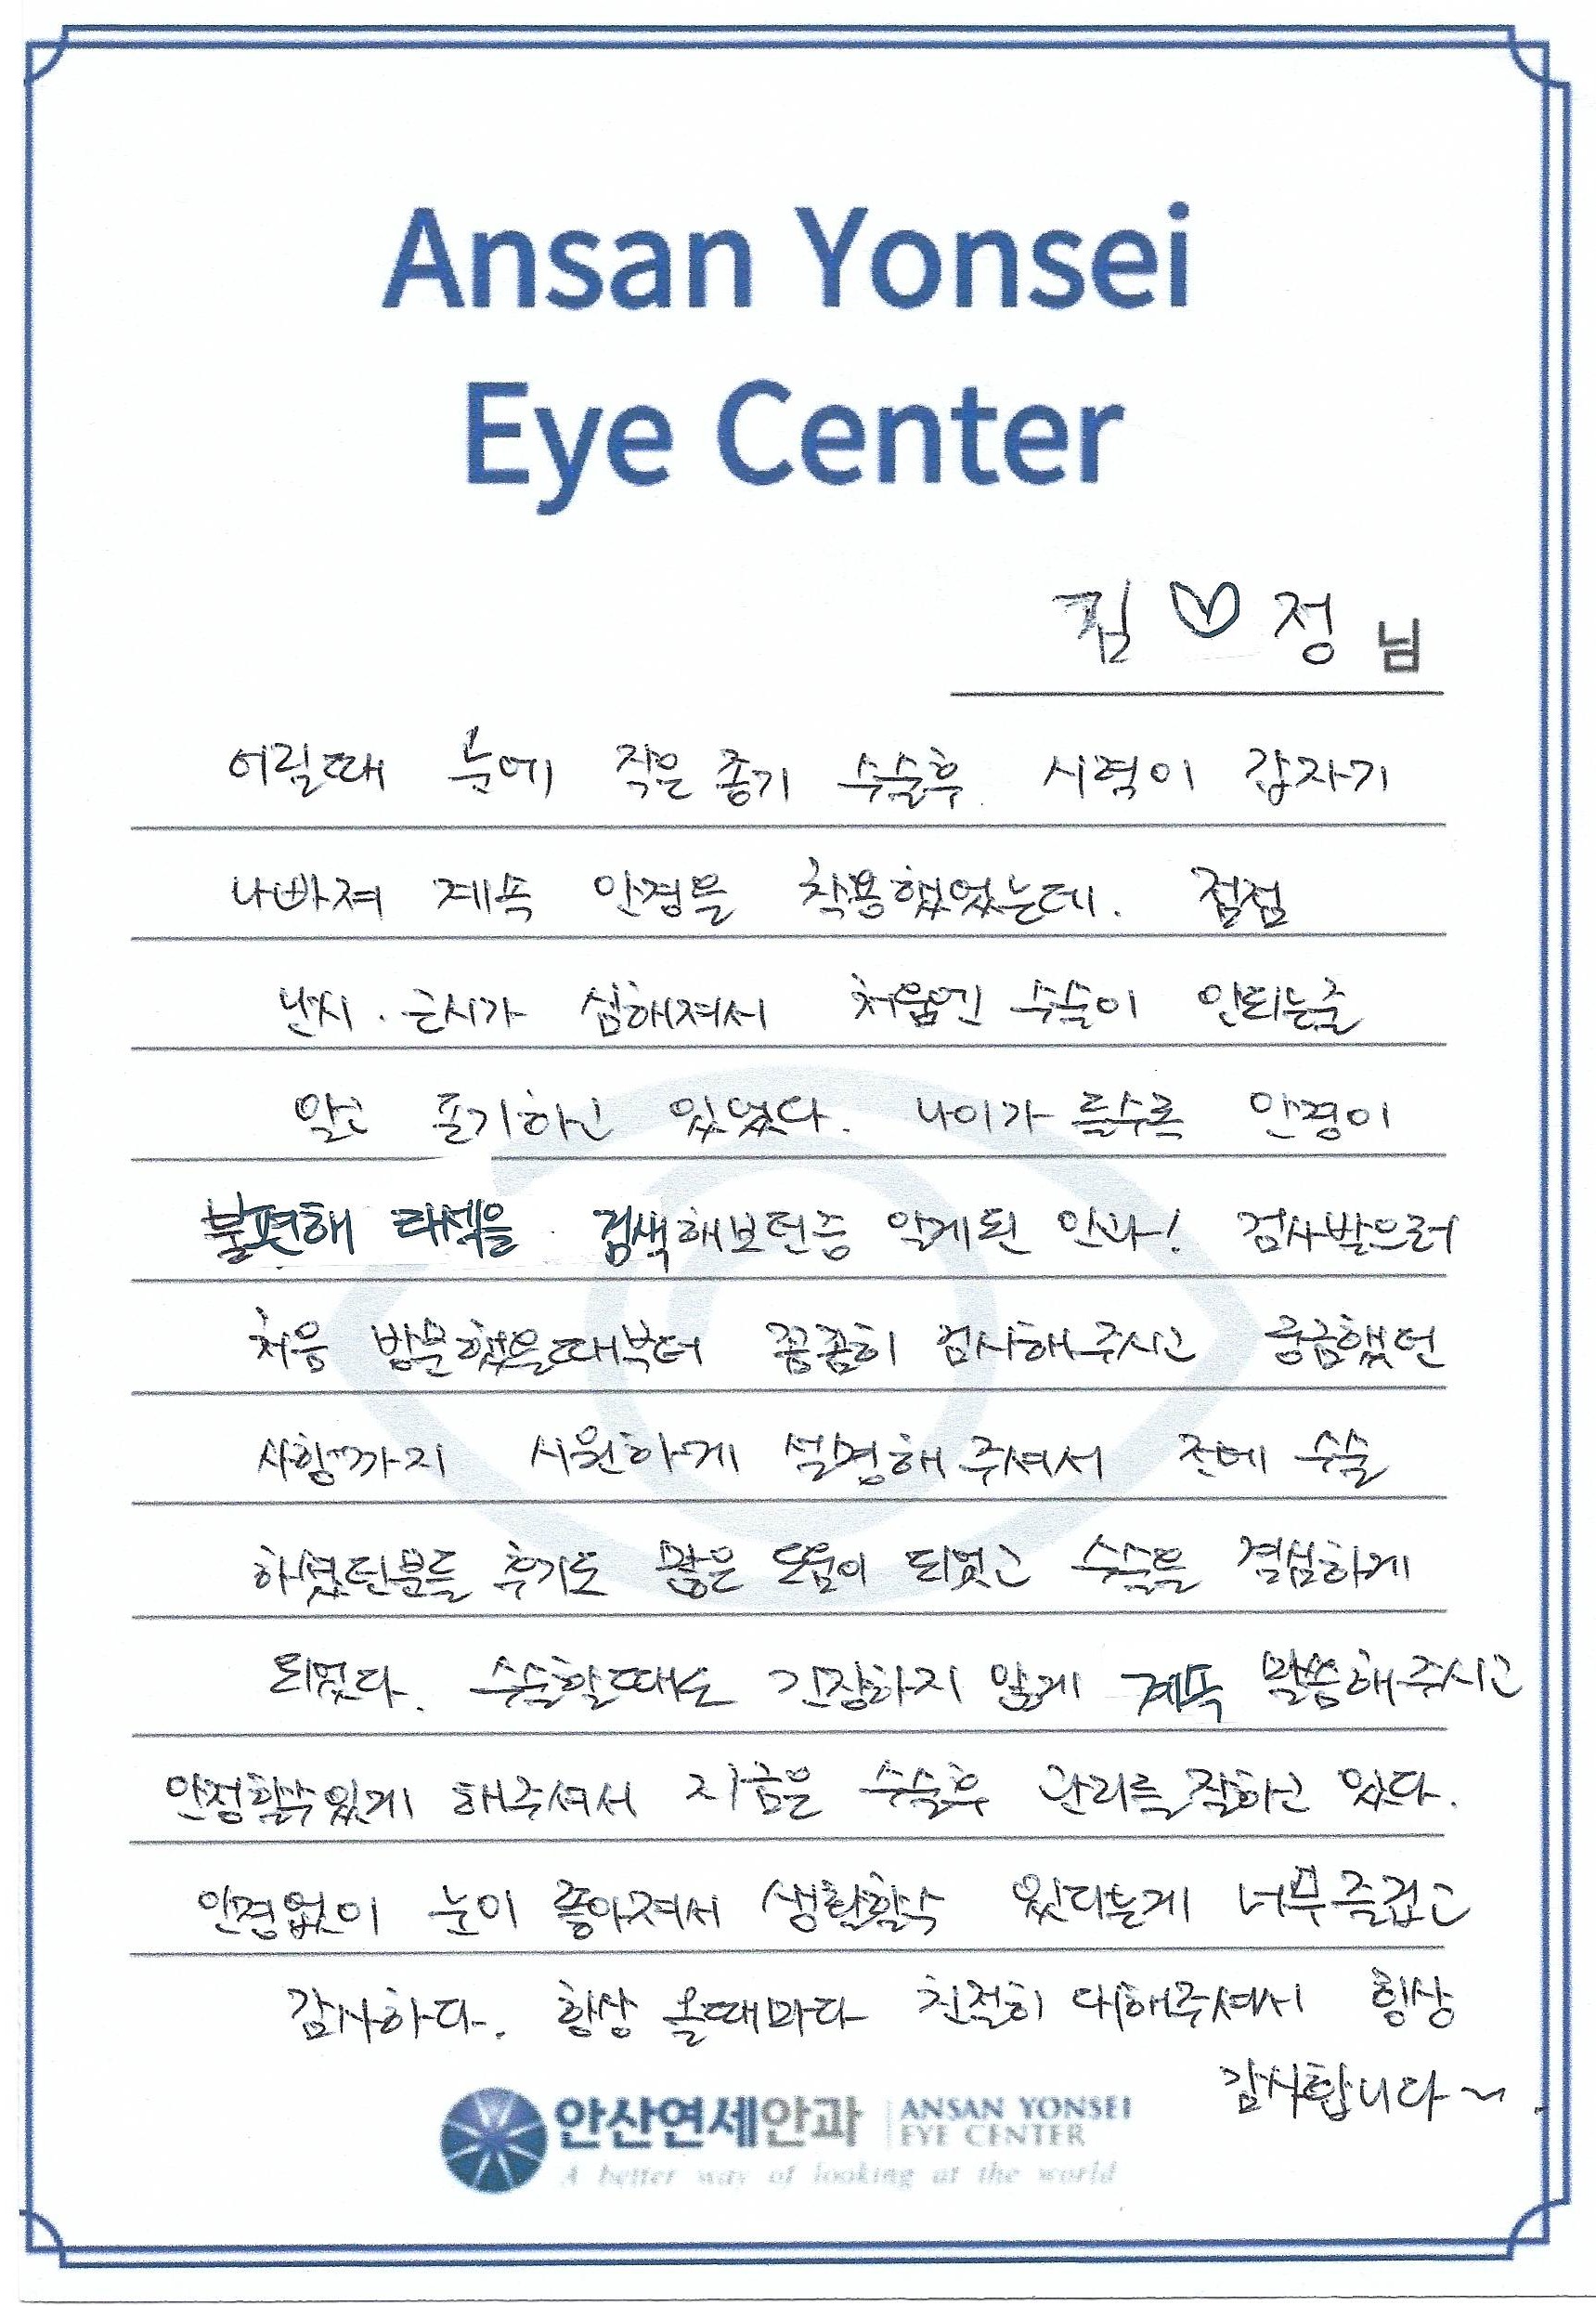 Ansan Yonsei
Eye Center
김 ♡ 정 님
어릴때 눈에 작은 종기 수술후 시력이 갑자기
나빠져 계속 안경을 착용했었는데. 점점
난시. 근시가 심해져서 처음엔 수술이 안되는줄
알고 포기하고 있었다. 나이가 들수록 안경이
불편해 라섹을 검색해보던중 알게된 안과! 검사받으러
처음 방문했을때부터 꼼꼼히 검사해주시고 궁금했던
사항까지 시원하게 설명해주셔서 전에 수술
하셨던분들 후기도 많은 도움이 되었고 수술을 결심하게
되었다. 수술할때도 긴장하지 않게 계속 말씀해주시고
안정할수있게 해주셔서 지금은 수술후 관리를 잘하고 있다.
안경없이 눈이 좋아져서 생활할수 있다는게 너무 즐겁고
감사하다. 항상 올때마다 친절히 대해주셔서 항상
감사합니다~.
안산연세안과 ANSAN YONSEI
EYE CENTER
A better way of looking at the world